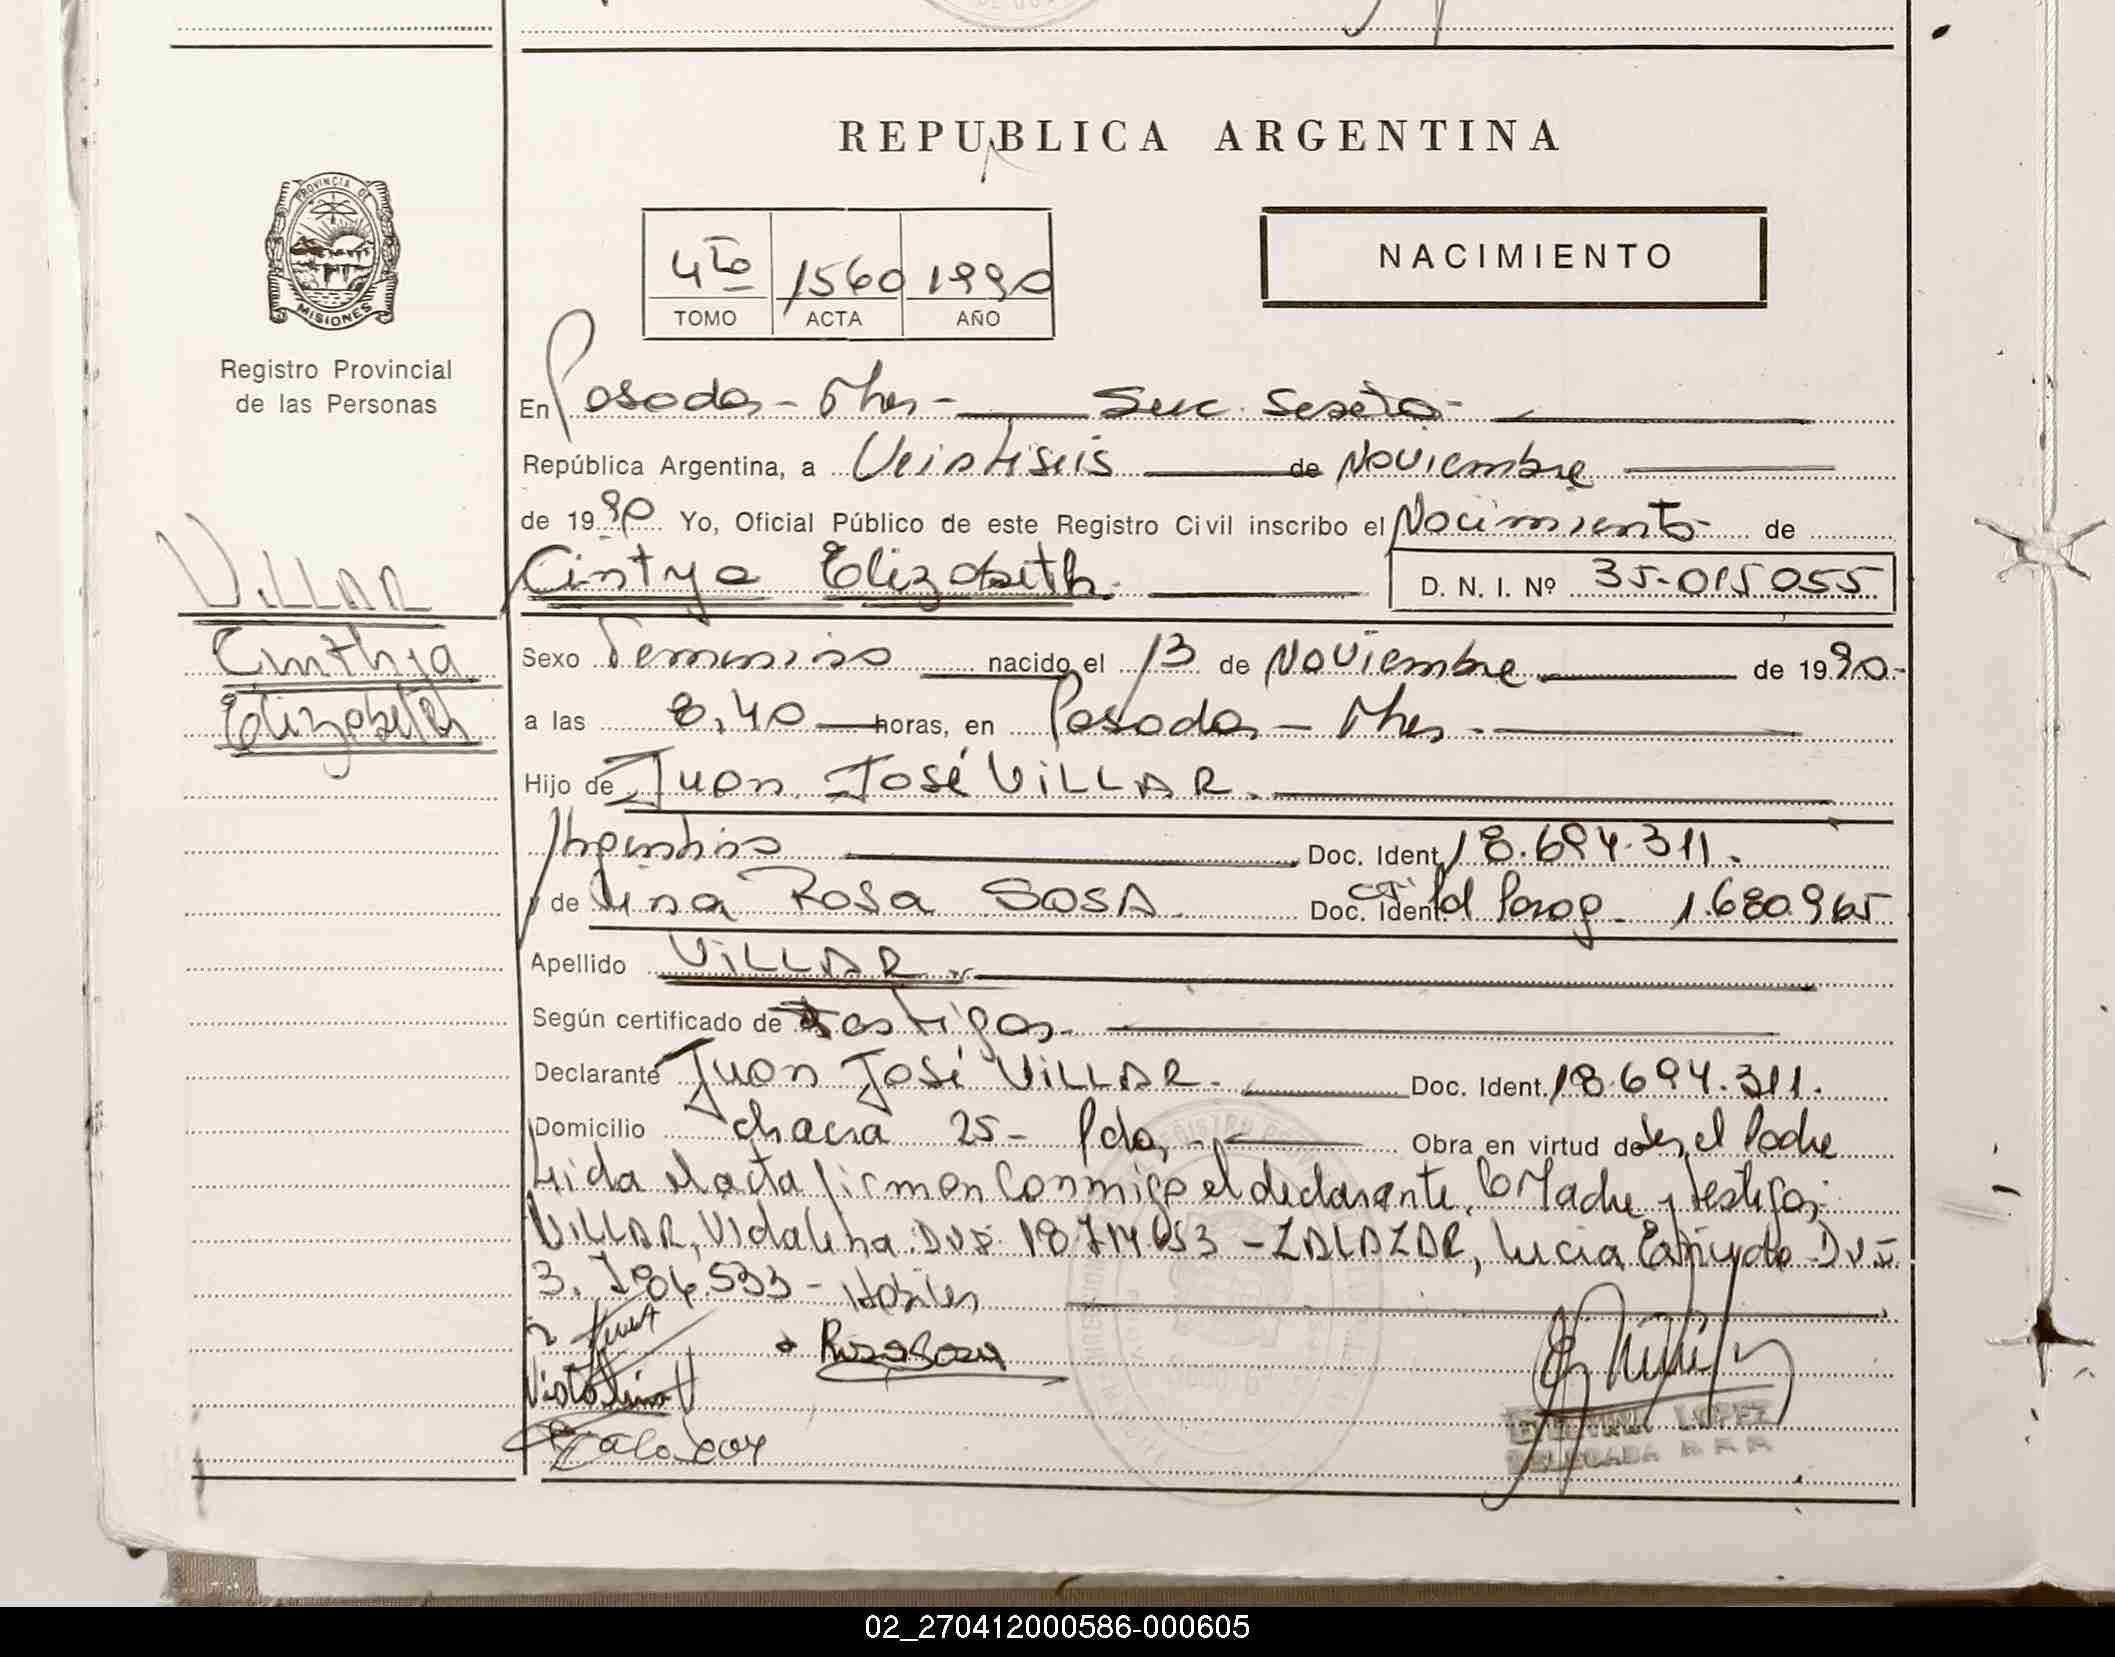 REPUBLICA ARGENTINA
PROVINCIA DE
MISIONES
Registro Provincial
de las Personas
4to 1560 1990
TOMO ACTA AÑO
NACIMIENTO
En Posadas - Mnes - Suc. Sexta -
República Argentina, a Veintiseis de Noviembre
de 1990 Yo, Oficial Público de este Registro Civil inscribo el Nacimiento de
Cintya Elizabeth. D. N. I. Nº 35.015.055
VILLAR
Cinthya
Elizabeth
Sexo Femenino nacido el 13 de Noviembre de 1990.-
a las 8,40 horas, en Posadas - Mnes -
Hijo de Juan José VILLAR.
Argentino Doc. Ident. 18.694.311.
y de Lina Rosa SOSA Doc. Ident. Parag. 1.680.965
Apellido VILLAR.
Según certificado de testigos.
Declarante Juan José VILLAR. Doc. Ident. 18.694.311.
Domicilio chacra 25 - Pdas. Obra en virtud de ser el Padre
Leida el acta firman conmigo el declarante, la Madre y testigos:
VILLAR, Vidalina DNI 18.714.653 - ZALAZAR, Lucia DNI
3. 533 - Habiles
Rosa Sosa
LOPEZ
DELEGADA
02_270412000586-000605